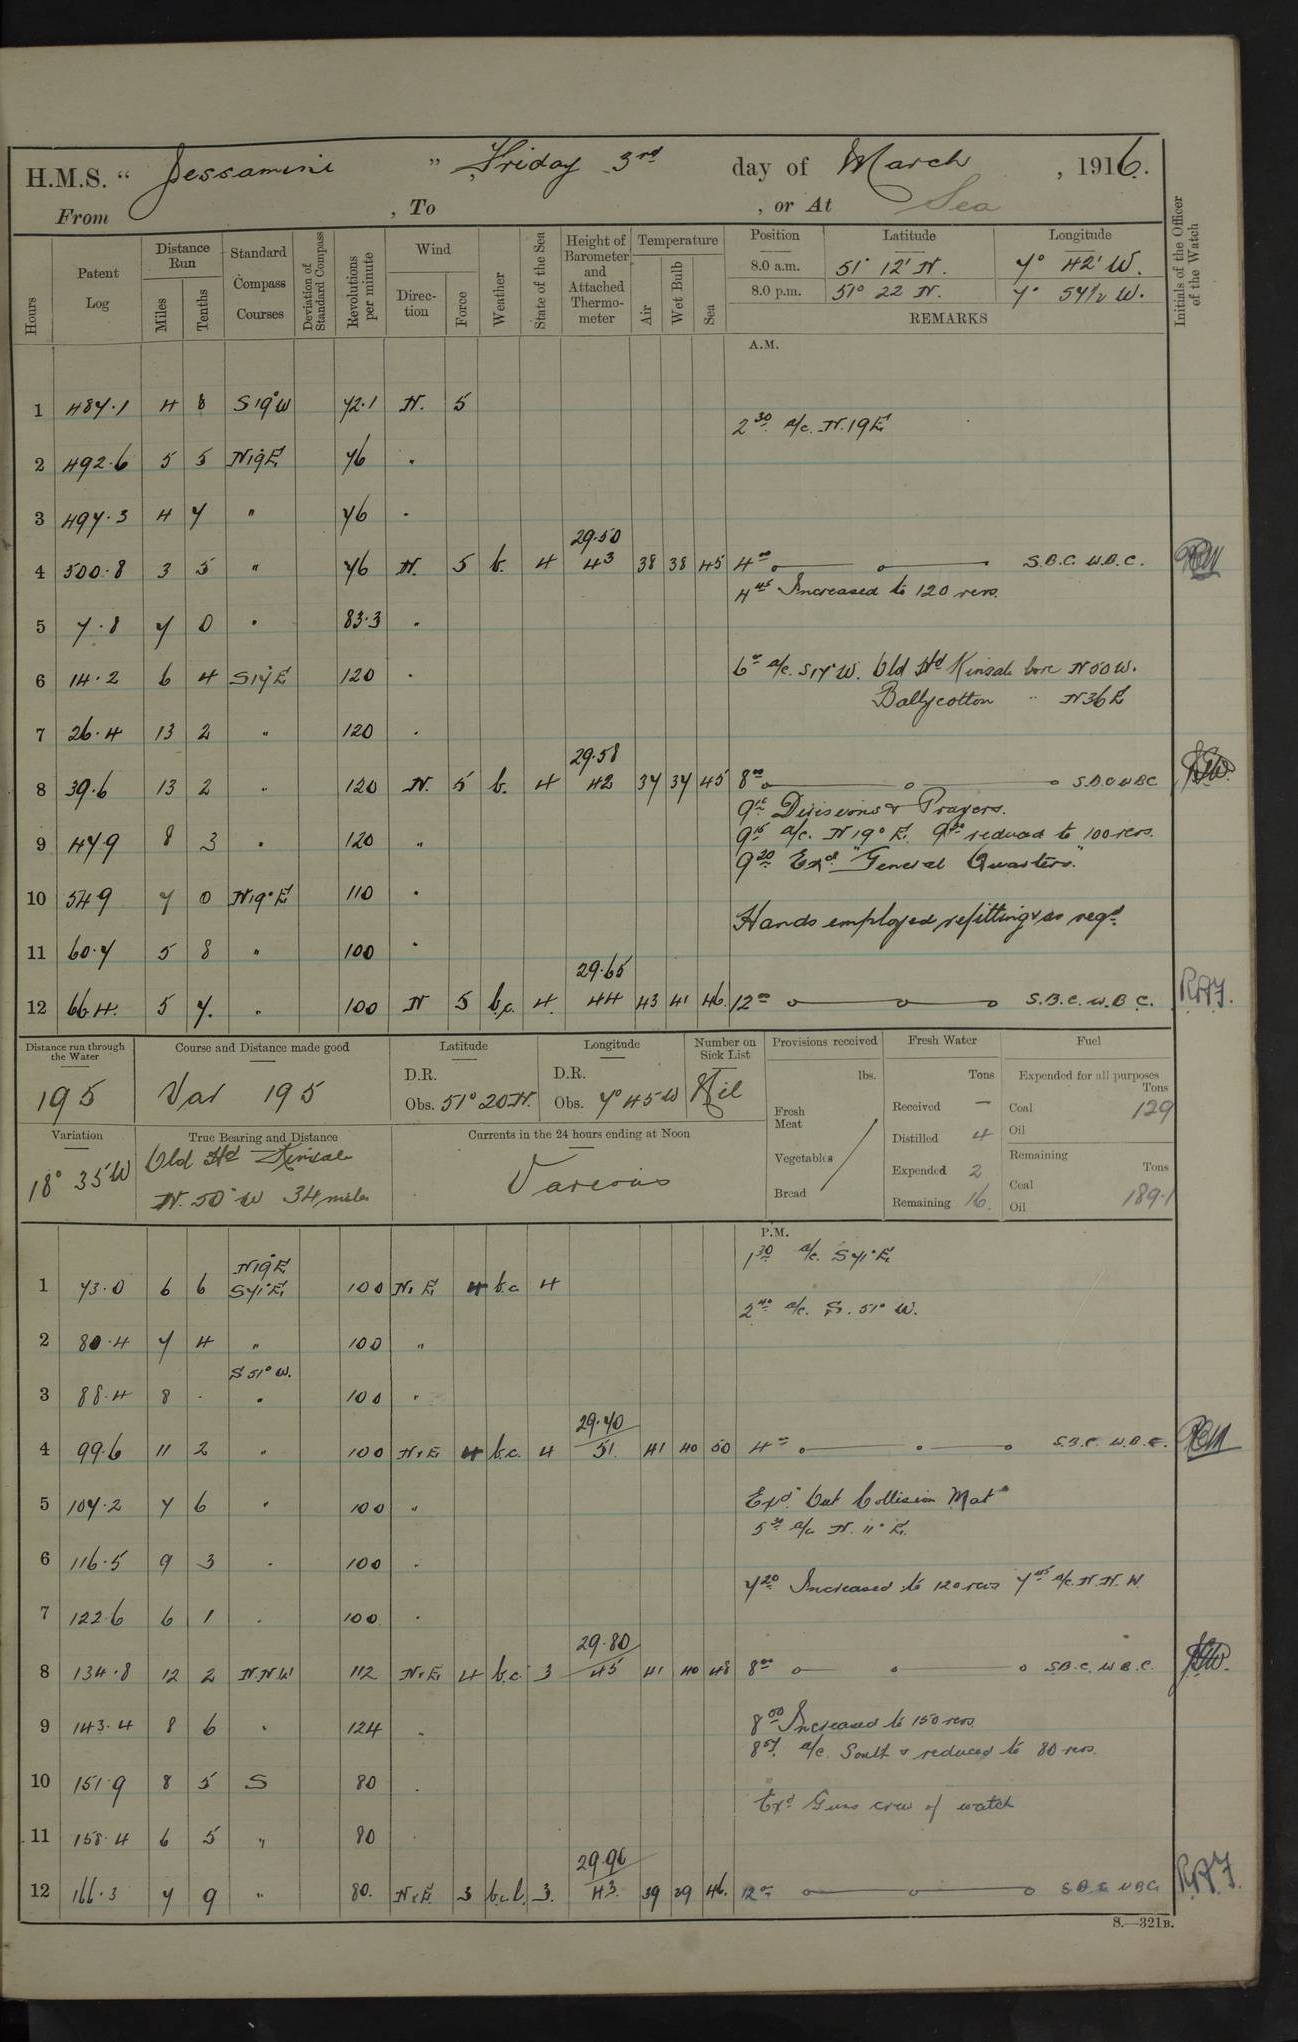 H.M.S. " Jessamine " , Friday 3rd day of March , 1916.
From , To , or At Sea
Hours
Patent Log
Distance Run
Miles
Tenths
Standard Compass Courses
Deviation of Standard Compass
Revolutions per minute
Wind
Direction
Force
Weather
State of the Sea
Height of Barometer and Attached Thermometer
Temperature
Air
Wet Bulb
Sea
Position Latitude Longitude
8.0 a.m. 51° 12' N. 7° 42' W.
8.0 p.m. 51° 22 N. 7° 54½ W.
REMARKS
Initials of the Officer of the Watch
A.M.
1 487.1 4 8 S19°W 72.1 N. 5
2 30 a/c. N.19E
2 492.6 5 5 N19E 76 "
3 497.3 4 7 " 76 "
29.50
4 500.8 3 5 " 76 N. 5 b. 4 43 38 38 45 4 00 S.B.C. W.B.C.
4 45 Increased to 120 revs.
5 7.8 7 0 " 83.3 "
6 14.2 6 4 S17E 120 " 6 00 a/c. S17°W. Old Hd Kinsale bore N50W.
Ballycotton " N36E
7 26.4 13 2 " 120 "
29.58
8 39.6 13 2 " 120 N. 5 b. 4 42 37 37 45 8 00 S.B.C W.B.C
9 Divisions & Prayers.
9 15 a/c. N19°E. 9 20 reduced to 100 revs.
9 47.9 8 3 " 120 "
9 20 Exd. "General Quarters."
10 54.9 7 0 N19°E 110 "
Hands employed refitting & as reqd.
11 60.7 5 8 " 100 "
29.65
12 66.4. 5 7. " 100 N 5 b.c. 4. 44 43 41 46. 12 00 S.B.C. W.B.C.
Distance run through the Water
195
Course and Distance made good
Var 195
Latitude
D.R.
Obs. 51° 20 N.
Longitude
D.R.
Obs. 7° 45 W
Number on Sick List
Nil
Provisions received
lbs.
Fresh Meat
Vegetables
Bread
Fresh Water
Tons
Received —
Distilled 4
Expended 2
Remaining 16.
Fuel
Expended for all purposes
Tons
Coal 129
Oil
Remaining
Tons
Coal 189.1
Oil
Variation
18° 35'W
True Bearing and Distance
Old Hd Kinsale
N. 50° W 34 miles
Currents in the 24 hours ending at Noon
Various
P.M.
1 30 a/c. S71°E.
N19E
1 73.0 6 6 S71°E. 100 N.E. 4 b.c 4
2 40 a/c. S. 51° W.
2 80.4 7 4 " 100 "
S 51° W.
3 88.4 8 - " 100 "
29.70
4 99.6 11 2 " 100 N.E 4 b.c. 4 51. 41 40 50 4 00 S.B.C. W.B.C.
5 107.2 7 6 " 100 " Exd. "Out Collision Mat"
5 30 a/c N. 11° E.
6 116.5 9 3 " 100 "
7 20 Increased to 120 revs 7 45 a/c. N.N.W
7 122.6 6 1 " 100 "
29.80
8 134.8 12 2 N.N.W 112 N.E. 4 b.c. 3 45 41 40 48 8 00 S.B.C. W.B.C.
9 143.4 8 6 " 124 " 8 00 Increased to 150 revs.
8 07 a/c. South & reduced to 80 revs.
10 151.9 8 5 S 80
Exd Guns crew of watch
11 158.4 6 5 " 80
29.96
12 166.3 7 9 " 80. N.E. 3 b.c. 3. 43. 39 39 46. 12 00 S.B.C W.B.C
S.—321B.